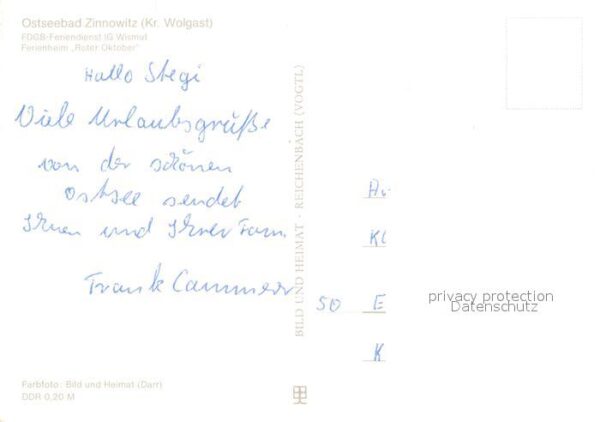 Ostseebad Zinnowitz (Kr. Wolgast)
FDGB-Feriendienst IG Wismut
Ferienheim „Roter Oktober"
Hallo Stegi
Viele Urlaubsgrüße
von der schönen
Ostsee sendet
Ihnen und Ihrer Fam.
Frank Cammeer
BILD UND HEIMAT · REICHENBACH (VOGTL)
Kl
50 E
K
privacy protection
Datenschutz
Farbfoto: Bild und Heimat (Darr)
DDR 0,20 M